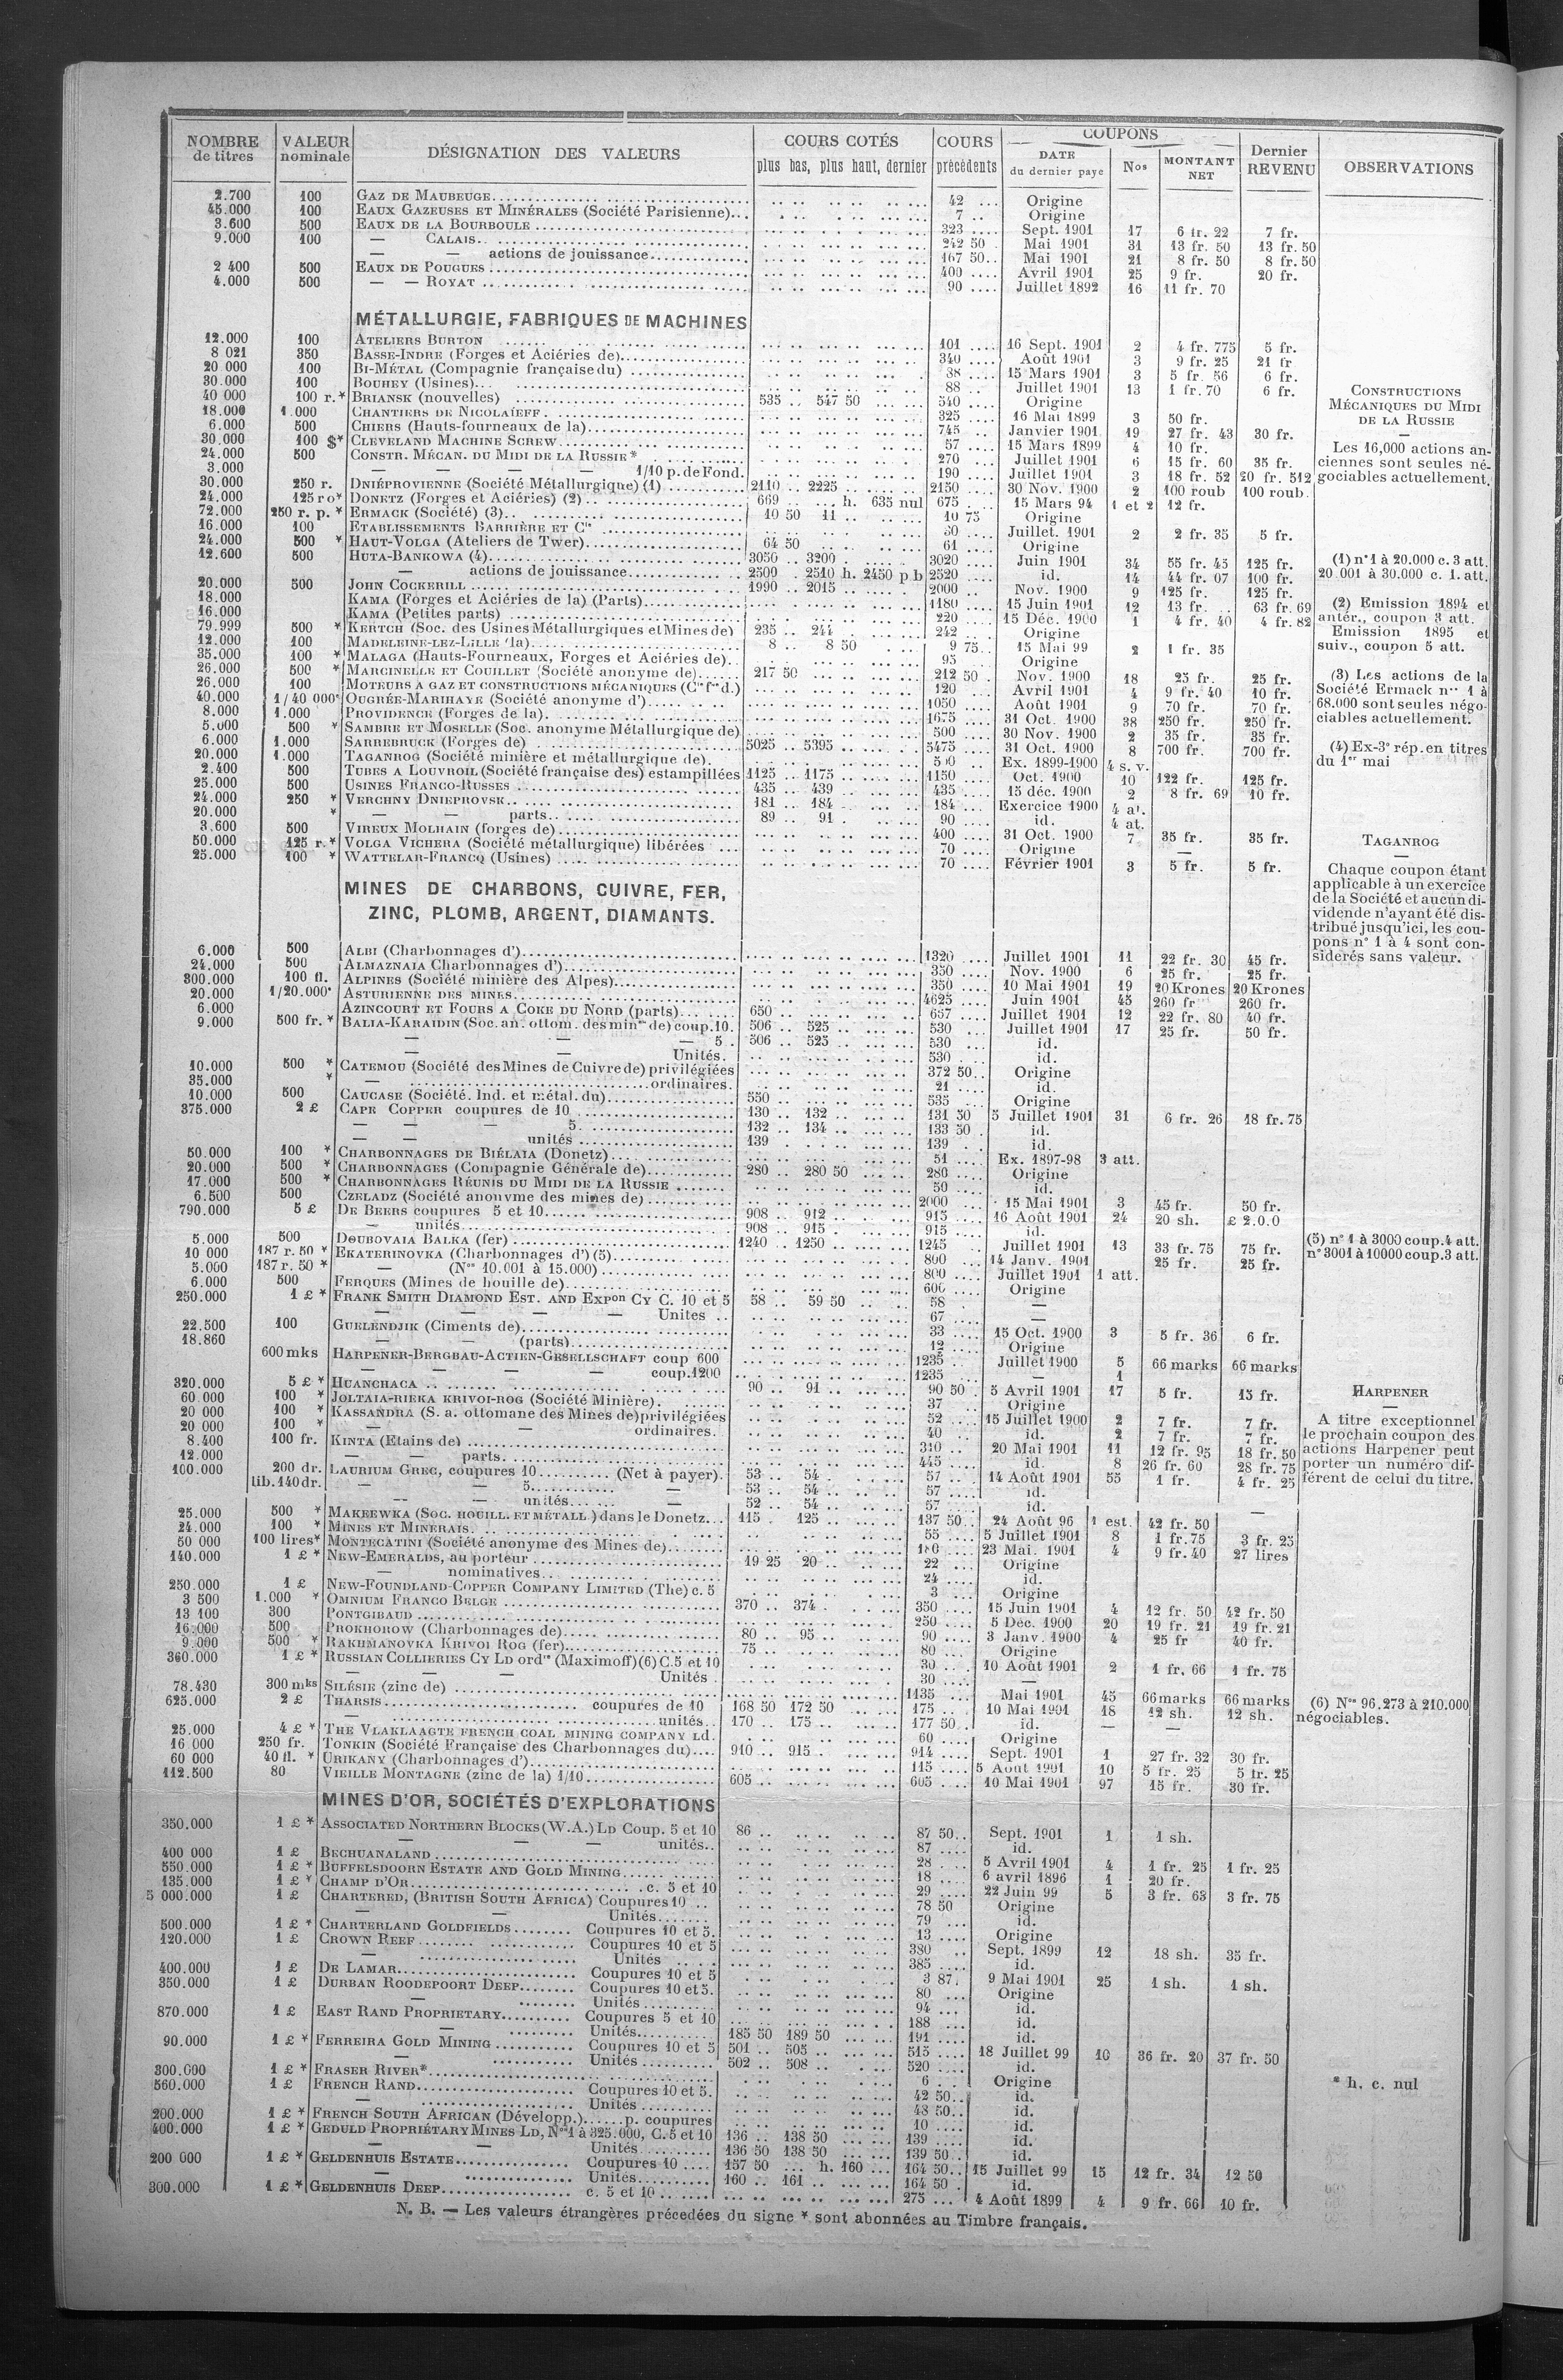 NOMBRE de titres | VALEUR nominale | DÉSIGNATION DES VALEURS | COURS COTÉS plus bas, plus haut, dernier | COURS précédents | COUPONS DATE du dernier payé | Nos | MONTANT NET | Dernier REVENU | OBSERVATIONS
2.700 100 GAZ DE MAUBEUGE 42 Origine
45.000 100 EAUX GAZEUSES ET MINÉRALES (Société Parisienne) 7 Origine
3.600 500 EAUX DE LA BOURBOULE 323 Sept. 1901 17 6 fr. 22 7 fr.
9.000 100 — CALAIS 242 50 Mai 1901 31 13 fr. 50 13 fr. 50
— — actions de jouissance 167 50 Mai 1901 21 8 fr. 50 8 fr. 50
2 400 500 EAUX DE POUGUES 400 Avril 1901 25 9 fr. 20 fr.
4.000 500 — — ROYAT 90 Juillet 1892 16 11 fr. 70
MÉTALLURGIE, FABRIQUES DE MACHINES
12.000 100 ATELIERS BURTON 101 16 Sept. 1901 2 4 fr. 775 5 fr.
8 021 350 BASSE-INDRE (Forges et Aciéries de) 340 Août 1901 3 9 fr. 25 21 fr
20 000 100 BI-MÉTAL (Compagnie française du) 38 15 Mars 1901 3 5 fr. 56 6 fr.
30.000 100 BOUHEY (Usines) 88 Juillet 1901 13 1 fr. 70 6 fr.
40 000 100 r.* BRIANSK (nouvelles) 535 547 50 540 Origine
18.000 1.000 CHANTIERS DE NICOLAÏEFF 325 16 Mai 1899 3 50 fr.
6.000 500 CHIERS (Hauts-fourneaux de la) 745 Janvier 1901 19 27 fr. 43 30 fr.
30.000 100 $* CLEVELAND MACHINE SCREW 57 15 Mars 1899 4 10 fr.
24.000 500 CONSTR. MÉCAN. DU MIDI DE LA RUSSIE* 270 Juillet 1901 6 15 fr. 60 35 fr.
3.000 — — — — 1/10 p. de Fond. 190 Juillet 1901 3 18 fr. 52 20 fr. 512
30.000 250 r. DNIÉPROVIENNE (Société Métallurgique) (1) 2110 2225 2150 30 Nov. 1900 2 100 roub 100 roub.
24.000 125 r o* DONETZ (Forges et Aciéries) (2) 669 h. 635 nul 675 15 Mars 94 1 et 2 12 fr.
72.000 250 r. p. * ERMACK (Société) (3) 10 50 11 10 75 Origine
16.000 100 ETABLISSEMENTS BARRIÈRE ET Cie 30 Juillet. 1901 2 2 fr. 35 5 fr.
24.000 500 * HAUT-VOLGA (Ateliers de Twer) 64 50 61 Origine
12.600 500 HUTA-BANKOWA (4) 3050 3200 3020 Juin 1901 34 55 fr. 45 125 fr.
— actions de jouissance 2500 2510 h. 2450 p b 2520 id. 14 44 fr. 07 100 fr.
20.000 500 JOHN COCKERILL 1990 2015 2000 Nov. 1900 9 125 fr. 125 fr.
18.000 KAMA (Forges et Aciéries de la) (Parts) 1180 15 Juin 1901 12 13 fr. 63 fr. 69
16.000 KAMA (Petites parts) 220 15 Déc. 1900 1 4 fr. 40 4 fr. 82
79.999 500 * KERTCH (Soc. des Usines Métallurgiques et Mines de) 235 244 242 Origine
12.000 100 MADELEINE-LEZ-LILLE (la) 8 8 50 9 75 15 Mai 99 2 1 fr. 35
35.000 100 * MALAGA (Hauts-Fourneaux, Forges et Aciéries de) 95 Origine
26.000 500 * MARCINELLE ET COUILLET (Société anonyme de) 217 50 212 50 Nov. 1900 18 25 fr. 25 fr.
26.000 100 MOTEURS A GAZ ET CONSTRUCTIONS MÉCANIQUES (Cie fse d.) 120 Avril 1901 4 9 fr. 40 10 fr.
40.000 1/40 000e OUGRÉE-MARIHAYE (Société anonyme d') 1050 Août 1901 9 70 fr. 70 fr.
8.000 1.000 PROVIDENCE (Forges de la) 1675 31 Oct. 1900 38 250 fr. 250 fr.
5.000 500 * SAMBRE ET MOSELLE (Soc. anonyme Métallurgique de) 500 30 Nov. 1900 2 35 fr. 35 fr.
6.000 1.000 SARREBRUCK (Forges de) 5025 5395 5475 31 Oct. 1900 8 700 fr. 700 fr.
20.000 1.000 TAGANROG (Société minière et métallurgique de) Ex. 1899-1900 4 s. v.
2.400 500 TUBES A LOUVROIL (Société française des) estampillées 1125 1175 1150 Oct. 1900 10 122 fr. 125 fr.
25.000 500 USINES FRANCO-RUSSES 435 439 435 15 déc. 1900 2 8 fr. 69 10 fr.
24.000 250 * VERCHNY DNIEPROVSK 181 184 184 Exercice 1900 4 at.
20.000 * — — parts 89 91 90 id. 4 at.
3.600 500 VIREUX MOLHAIN (forges de) 400 31 Oct. 1900 7 35 fr. 35 fr.
50.000 125 r.* VOLGA VICHERA (Société métallurgique) libérées 70 Origine
25.000 100 * WATTELAR-FRANCQ (Usines) 70 Février 1901 3 5 fr. 5 fr.
MINES DE CHARBONS, CUIVRE, FER,
ZINC, PLOMB, ARGENT, DIAMANTS.
6.000 500 ALBI (Charbonnages d') 1320 Juillet 1901 11 22 fr. 30 45 fr.
24.000 500 ALMAZNAIA Charbonnages d') 350 Nov. 1900 6 25 fr. 25 fr.
300.000 100 fl. ALPINES (Société minière des Alpes) 350 10 Mai 1901 19 20 Krones 20 Krones
20.000 1/20.000e ASTURIENNE DES MINES 4625 Juin 1901 45 260 fr 260 fr.
6.000 AZINCOURT ET FOURS A COKE DU NORD (parts) 650 657 Juillet 1901 12 22 fr. 80 40 fr.
9.000 500 fr. * BALIA-KARAIDIN (Soc. an. ottom. des mines de) coup. 10. 506 525 530 Juillet 1901 17 25 fr. 50 fr.
— — — 5 506 525 530 id.
— — Unités. 530 id.
10.000 500 * CATEMOU (Société des Mines de Cuivre de) privilégiées 372 50 Origine
35.000 * — ordinaires. 21 id.
10.000 500 CAUCASE (Société. Ind. et métal. du) 550 535 Origine
375.000 2 £ CAPE COPPER coupures de 10 130 132 131 50 5 Juillet 1901 31 6 fr. 26 18 fr. 75
— — — 5 132 134 133 50 id.
— — unités 139 139 id.
50.000 100 * CHARBONNAGES DE BIÉLAIA (Donetz) 51 Ex. 1897-98 3 att.
20.000 500 * CHARBONNAGES (Compagnie Générale de) 280 280 50 280 Origine
17.000 500 * CHARBONNAGES RÉUNIS DU MIDI DE LA RUSSIE 50 id.
6.500 500 CZELADZ (Société anonyme des mines de) 2000 15 Mai 1901 3 45 fr. 50 fr.
790.000 5 £ DE BEERS coupures 5 et 10 908 912 915 16 Août 1901 24 20 sh. £ 2.0.0
— unités 908 915 915 id.
5.000 500 DOUBOVAIA BALKA (fer) 1240 1250 1245 Juillet 1901 13 33 fr. 75 75 fr.
10 000 187 r. 50 * EKATERINOVKA (Charbonnages d') (5) 800 14 Janv. 1901 25 fr. 25 fr.
5.000 187 r. 50 * — (Nos 10.001 à 15.000) 800 Juillet 1901 1 att.
6.000 500 FERQUES (Mines de houille de) 600 Origine
250.000 1 £ * FRANK SMITH DIAMOND EST. AND EXPon CY C. 10 et 5 58 59 50 58 —
— — — — Unites 67 —
22.500 100 GUELENDJIK (Ciments de) 33 15 Oct. 1900 3 5 fr. 36 6 fr.
18.860 — — (parts) 12 Origine
600 mks HARPENER-BERGBAU-ACTIEN-GESELLSCHAFT coup 600 1235 Juillet 1900 5 66 marks 66 marks
— — — coup. 1200 1235 — 1
320.000 5 £ * HUANCHACA 90 91 90 50 5 Avril 1901 17 5 fr. 15 fr.
60 000 100 * JOLTAIA-RIEKA KRIVOI-ROG (Société Minière) 37 Origine
20 000 100 * KASSANDRA (S. a. ottomane des Mines de) privilégiées 52 15 Juillet 1900 2 7 fr. 7 fr.
20 000 100 * — — ordinaires. 40 id. 2 7 fr. 7 fr.
8.400 100 fr. KINTA (Etains de) 310 20 Mai 1901 11 12 fr. 95 18 fr. 50
12.000 — — parts. 445 id. 8 26 fr. 60 28 fr. 75
100.000 200 dr. LAURIUM GREC, coupures 10 (Net à payer). 53 54 57 14 Août 1901 55 1 fr. 4 fr. 25
lib. 140 dr. — — 5 — 53 54 57 id.
— — unités — 52 54 57 id. —
25.000 500 * MAKEEWKA (SOC. HOUILL. ET MÉTALL.) dans le Donetz 115 125 137 50 24 Août 96 1 est. 42 fr. 50
24.000 100 * MINES ET MINERAIS 55 5 Juillet 1901 8 1 fr. 75 3 fr. 25
50 000 100 lires* MONTECATINI (Société anonyme des Mines de) 23 Mai. 1901 4 9 fr. 40 27 lires
140.000 1 £ * NEW-EMERALDS, au porteur 19 25 20 22 Origine
— nominatives 24 id.
250.000 1 £ NEW-FOUNDLAND-COPPER COMPANY LIMITED (The) c. 5 3 Origine
3 500 1.000 * OMNIUM FRANCO BELGE 370 374 350 15 Juin 1901 4 12 fr. 50 42 fr. 50
13 100 300 PONTGIBAUD 250 5 Déc. 1900 20 19 fr. 21 19 fr. 21
16.000 500 PROKHOROW (Charbonnages de) 80 95 90 3 Janv. 1900 4 25 fr 40 fr.
9.000 500 * RAKHMANOVKA KRIVOI ROG (fer) 75 80 Origine
360.000 1 £ * RUSSIAN COLLIERIES CY LD ordres (Maximoff) (6) C. 5 et 10 30 10 Août 1901 2 1 fr. 66 1 fr. 75
— — — Unités 30 —
78.430 300 mks SILÉSIE (zinc de) 1135 Mai 1901 45 66 marks 66 marks
625.000 2 £ THARSIS coupures de 10 168 50 172 50 175 10 Mai 1901 18 12 sh. 12 sh.
— unités 170 175 177 50 id. — —
25.000 4 £ * THE VLAKLAAGTE FRENCH COAL MINING COMPANY LD. 60 Origine
16 000 250 fr. TONKIN (Société Française des Charbonnages du) 910 915 914 Sept. 1901 1 27 fr. 32 30 fr.
60 000 40 fl. * URIKANY (Charbonnages d') 115 5 Août 1901 10 5 fr. 25 5 fr. 25
112.500 80 VIEILLE MONTAGNE (zinc de la) 1/10 605 605 10 Mai 1901 97 15 fr. 30 fr.
MINES D'OR, SOCIÉTÉS D'EXPLORATIONS
350.000 1 £ * ASSOCIATED NORTHERN BLOCKS (W.A.) LD Coup. 5 et 10 86 87 50 Sept. 1901 1 1 sh.
— — — unités 87 id.
400 000 1 £ BECHUANALAND 28 5 Avril 1901 4 1 fr. 25 1 fr. 25
550.000 1 £ * BUFFELSDOORN ESTATE AND GOLD MINING 18 6 avril 1896 1 20 fr.
135.000 1 £ * CHAMP D'OR c. 5 et 10 29 22 Juin 99 5 3 fr. 63 3 fr. 75
5 000.000 1 £ CHARTERED, (BRITISH SOUTH AFRICA) Coupures 10 78 50 Origine
— Unités 79 id.
500.000 1 £ * CHARTERLAND GOLDFIELDS Coupures 10 et 5. 13 Origine
120.000 1 £ CROWN REEF Coupures 10 et 5 380 Sept. 1899 12 18 sh. 35 fr.
— Unités 385 id.
400.000 1 £ DE LAMAR Coupures 10 et 5 3 87 9 Mai 1901 25 1 sh. 1 sh.
350.000 1 £ DURBAN ROODEPOORT DEEP Coupures 10 et 5. 80 Origine
— Unités 94 id.
870.000 1 £ EAST RAND PROPRIETARY Coupures 5 et 10 188 id.
— Unités 185 50 189 50 191 id.
90.000 1 £ * FERREIRA GOLD MINING Coupures 10 et 5 501 505 515 18 Juillet 99 10 36 fr. 20 37 fr. 50
— Unités 502 508 520 id.
300.000 1 £ * FRASER RIVER* 6 Origine
560.000 1 £ FRENCH RAND Coupures 10 et 5. 42 50 id.
— Unités 48 50 id.
200.000 1 £ * FRENCH SOUTH AFRICAN (Développ.) p. coupures 10 id.
400.000 1 £ * GEDULD PROPRIÉTARY MINES LD, Nos 1 à 325.000, C. 5 et 10 136 138 50 139 id.
— — Unités 136 50 138 50 139 50 id.
200 000 1 £ * GELDENHUIS ESTATE Coupures 10 157 50 h. 160 164 50 15 Juillet 99 15 12 fr. 34 12 50
— Unités 160 161 164 50 id.
300.000 1 £ * GELDENHUIS DEEP c. 5 et 10 275 4 Août 1899 4 9 fr. 66 10 fr.
CONSTRUCTIONS
MÉCANIQUES DU MIDI
DE LA RUSSIE
—
Les 16,000 actions an-
ciennes sont seules né-
gociables actuellement.
(1) n° 1 à 20.000 c. 3 att.
20 001 à 30.000 c. 1. att.
(2) Emission 1894 et
antér., coupon 3 att.
Emission 1895 et
suiv., coupon 5 att.
(3) Les actions de la
Société Ermack nos 1 à
68.000 sont seules négo-
ciables actuellement.
(4) Ex-3e rép. en titres
du 1er mai
TAGANROG
—
Chaque coupon étant
applicable à un exercice
de la Société et aucun di-
vidende n'ayant été dis-
tribué jusqu'ici, les cou-
pons n° 1 à 4 sont con-
sidérés sans valeur.
(5) n° 1 à 3000 coup. 4 att.
n° 3001 à 10000 coup. 3 att.
HARPENER
—
A titre exceptionnel
le prochain coupon des
actions Harpener peut
porter un numéro dif-
férent de celui du titre.
(6) Nos 96.273 à 210.000
négociables.
* h. c. nul
N. B. — Les valeurs étrangères précedées du signe * sont abonnées au Timbre français.